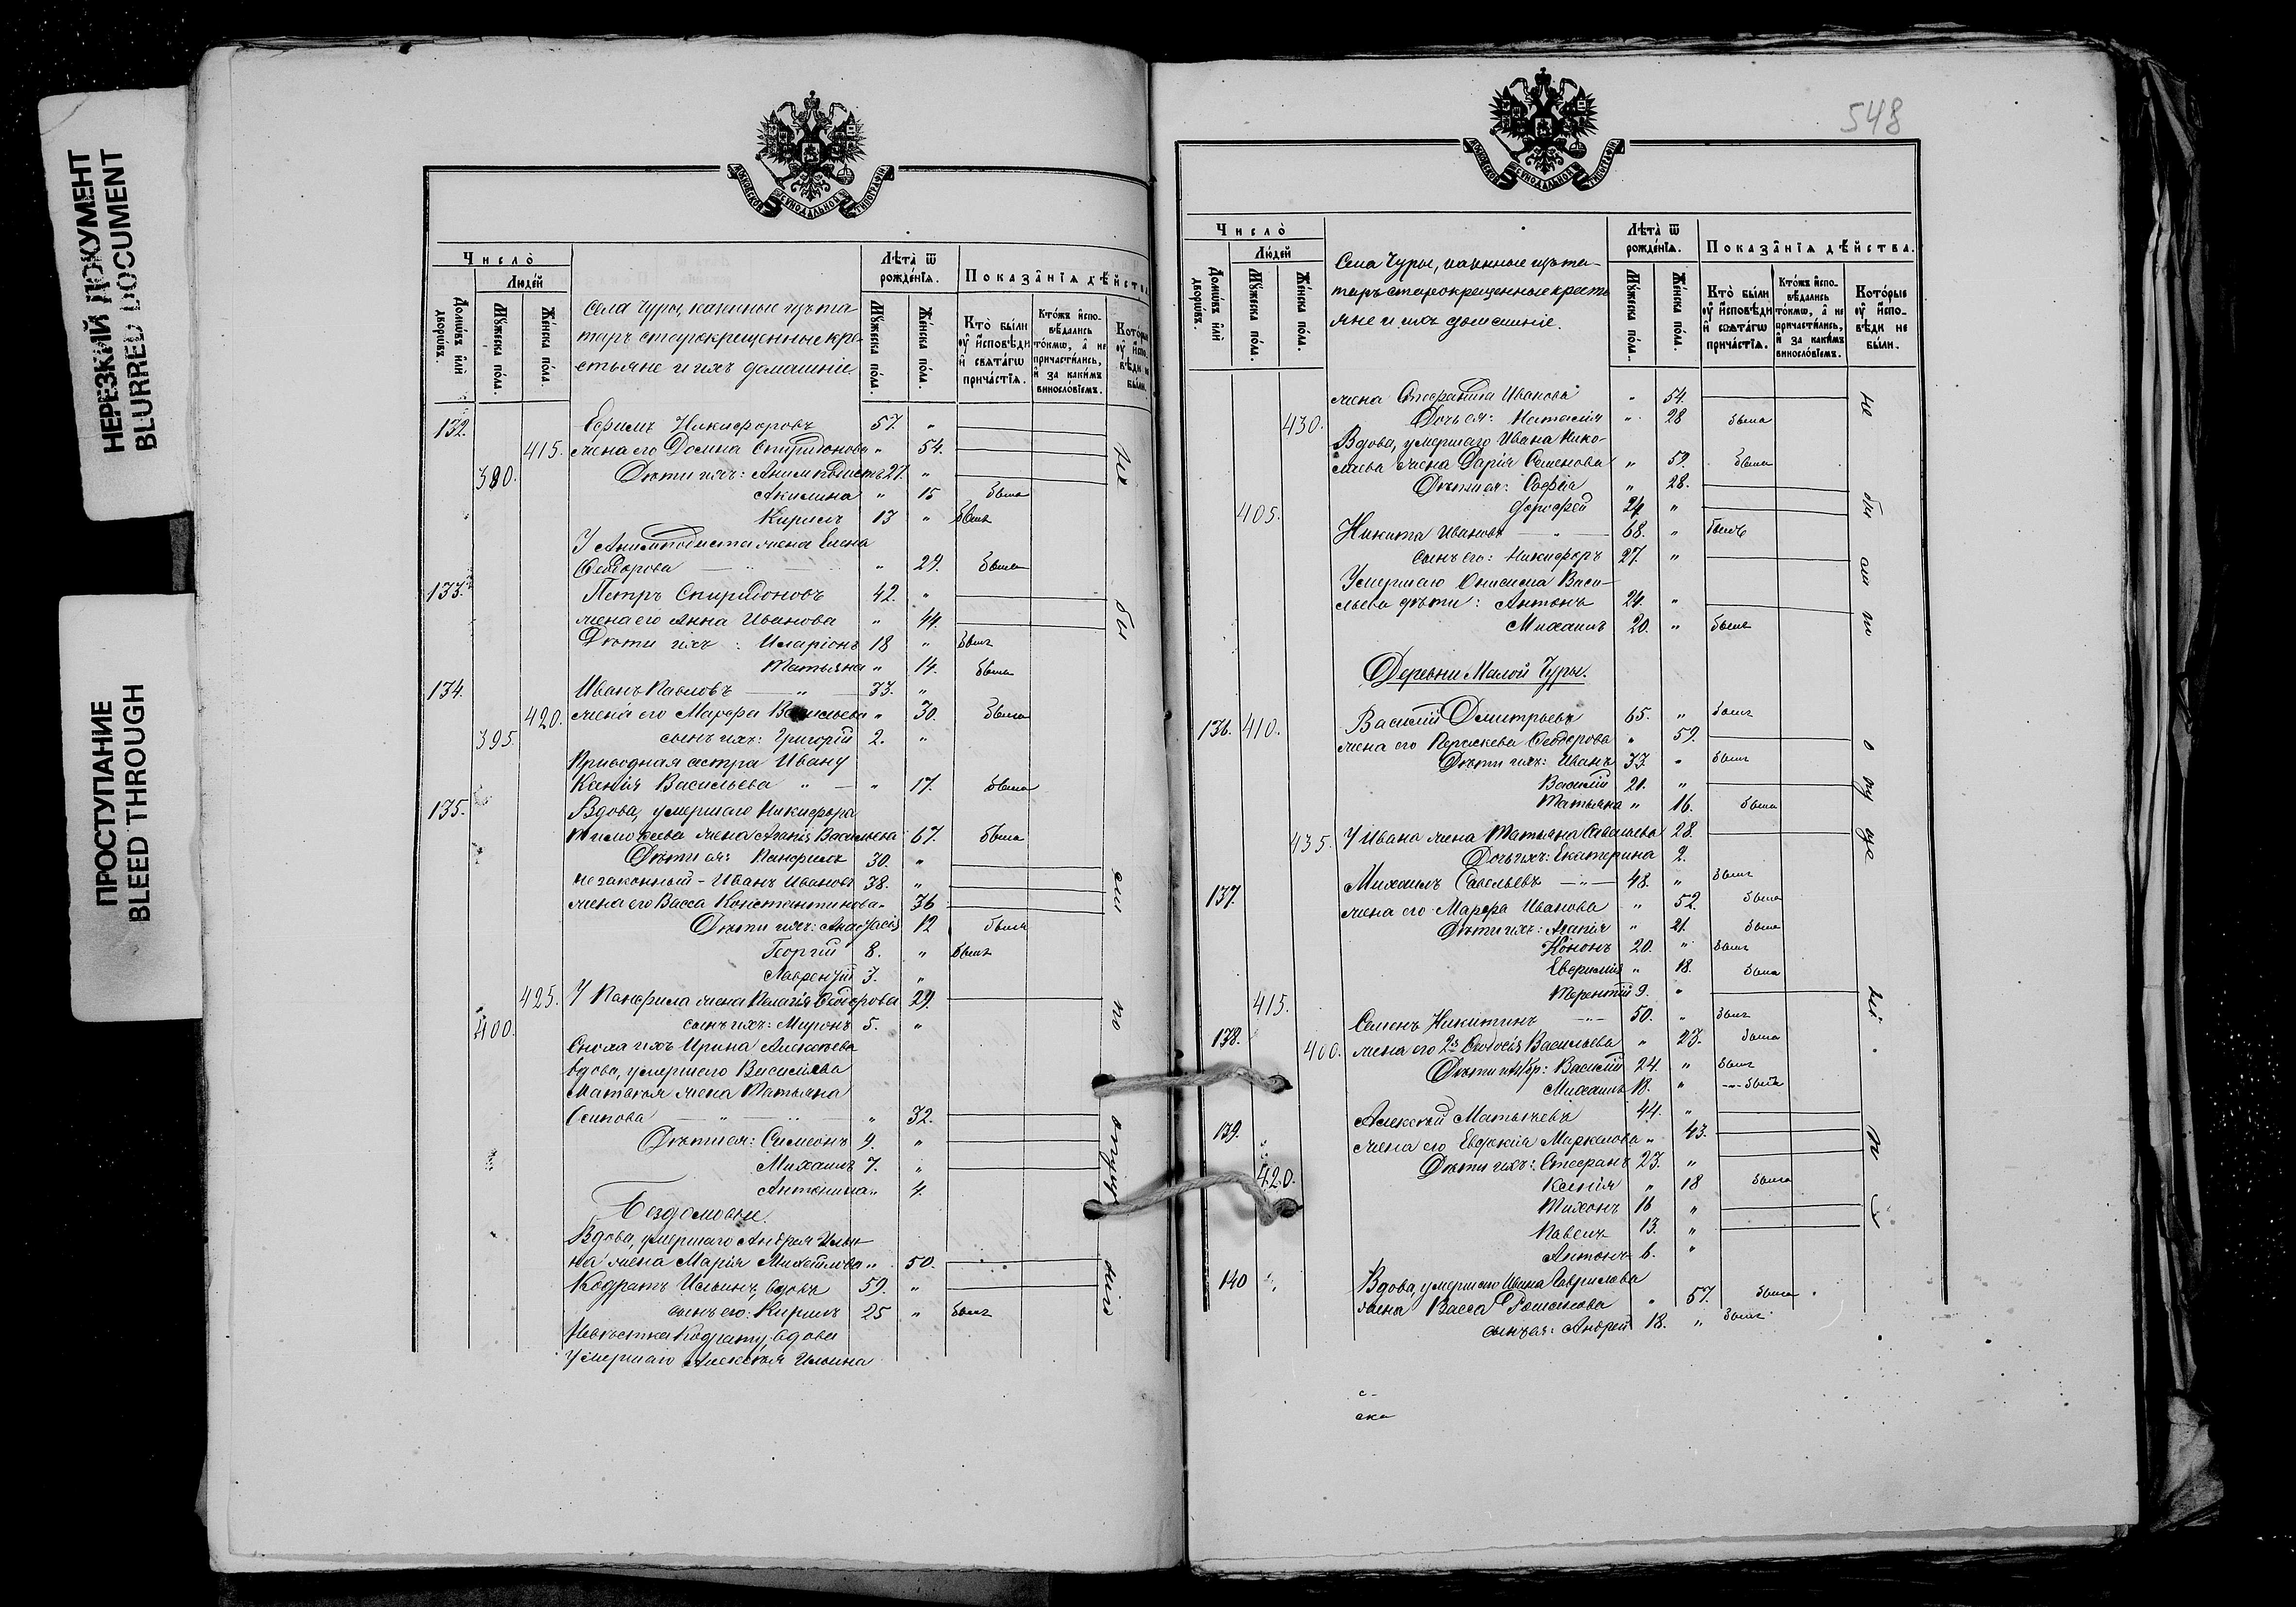 НЕРЕЗКИЙ ДОКУМЕНТ
BLURRED DOCUMENT
ПРОСТУПАНИЕ
BLEED THROUGH
МОСКОВСКОЙ СѴНОДАЛЬНОЙ ТИПОГРАФІИ
Число̀
Людей
Домѡвъ или дворѡвъ.
Мꙋжеска пола.
Женска пола.
Села Чуры, казенные изъ та-
таръ старокрещенные кре-
стьяне и ихъ домашніе
Лѣта ѿ рожденїѧ.
Мꙋжеска пола.
Женска пола.
Показанїѧ дѣйства
Кто были ᲂу исповѣди и свѧтагѡ причастїѧ.
Ктожъ исповѣдались токмѡ, а не причастились, и за какимъ винословїемъ.
Которые ᲂу исповѣди не были.
132. Ефимъ Никифоровъ 57. "
415. жена его Домна Спиридонова " 54.
390. Дѣти ихъ: Анемподистъ 21. "
Акилина " 15 была
Кирилъ 13 " былъ
У Анемподиста жена Елена
Ѳеодорова " 29. была
133. Петръ Спиридоновъ 42. "
жена его Анна Иванова " 44.
Дѣти ихъ: Иларіонъ 18 " былъ
Татьяна " 14. была
134. Иванъ Павловъ — " — 33. "
420. жена его Марфа Васильева " 30. была
395. сынъ ихъ: Григорій 2. "
Приводная сестра Ивану
Ксенія Васильева " — " 17. была
135. Вдова, умершаго Никифора
Тимоѳеева жена Агапія Васильева 67. была
Дѣти ея: Панфилъ 30. "
незаконный - Иванъ Ивановъ 38. "
жена его Васса Константинова " 36
Дѣти ихъ: 12 была
Георгій 8. " былъ
Лаврентій 3. "
425. У Панфила жена Пелагія Ѳеодорова 29.
400. сынъ ихъ: Миронъ 5. "
Сноха ихъ Ирина Алексѣева
вдова, умершаго Василіева
Матвѣя жена Татьяна
Осипова " " " 32.
Дѣти ея: Симеонъ 9. "
Михаилъ 7. "
Антонина " 4.
Бездомовые.
Вдова, умершаго Андрея Ильи-
на жена Марія Михайлова " 50.
Кодратъ Ильинъ, вдовъ 59. "
сынъ его: Кирилъ 25 " былъ
Невѣстка Кодрату, вдова
умершаго Алексѣя Ильина
не бы ли по
548
МОСКОВСКОЙ СѴНОДАЛЬНОЙ ТИПОГРАФІИ
Число̀
Людей
Домѡвъ или дворѡвъ.
Мꙋжеска пола.
Женска пола.
Села Чуры, казенные изъ та-
таръ старокрещенные кресть
яне и ихъ домашніе.
Лѣта ѿ рожденїѧ.
Мꙋжеска пола.
Женска пола.
Показанїѧ дѣйства.
Кто были ᲂу исповѣди и свѧтагѡ причастїѧ.
Ктожъ исповѣдались токмѡ, а не причастились, и за какимъ винословїемъ.
Которые ᲂу исповѣди не были.
жена Стефанида Иванова " 54.
430. Дочь ея: Наталія " 28 была
Вдова, умершаго Ивана Нико-
лаева жена Дарія Семенова " 59. была
Дѣти ея: Софія " 28.
405. Дорофей 24 "
Никита Ивановъ — " — 68. " былъ
сынъ его: Никифоръ 27. "
Умершаго Онисима Васи-
льева дѣти: Антонъ 24. "
Михаилъ 20. " былъ
Деревни Малой Чуры.
136. 410. Василій Дмитріевъ 65. " былъ
жена его Параскева Ѳеодорова " 59.
Дѣти ихъ: Иванъ 33 " былъ
Василій 21. "
Татьяна " 16. была
435. У Ивана жена Татьяна Савельева 28.
Дочь ихъ: Екатерина 2.
137. Михаилъ Савельевъ — " — 48. " былъ
жена его Марфа Иванова " 52. была
Дѣти ихъ: Агапія " 21. была
Кононъ 20. " былъ
Евфимія " 18. была
415. Терентій 9. "
138. Семенъ Никитинъ — " — 50. " былъ
400. жена его 2я Ѳеодосія Васильева " 23. была
Дѣти ихъ: Василій 24. " былъ
Михаилъ 18. " былъ
139. Алексѣй Матвѣевъ 44. "
жена его Евдокія Маркелова " 43.
420. Дѣти ихъ: Стефанъ 23. "
Ксенія " 18 была
Тихонъ 16 "
Павелъ 13. "
Антонъ 6. "
140 Вдова, умершаго Ивана Гаврилова
жена Васса Романова " 57. была
сынъ ея: Андрей 18. " былъ